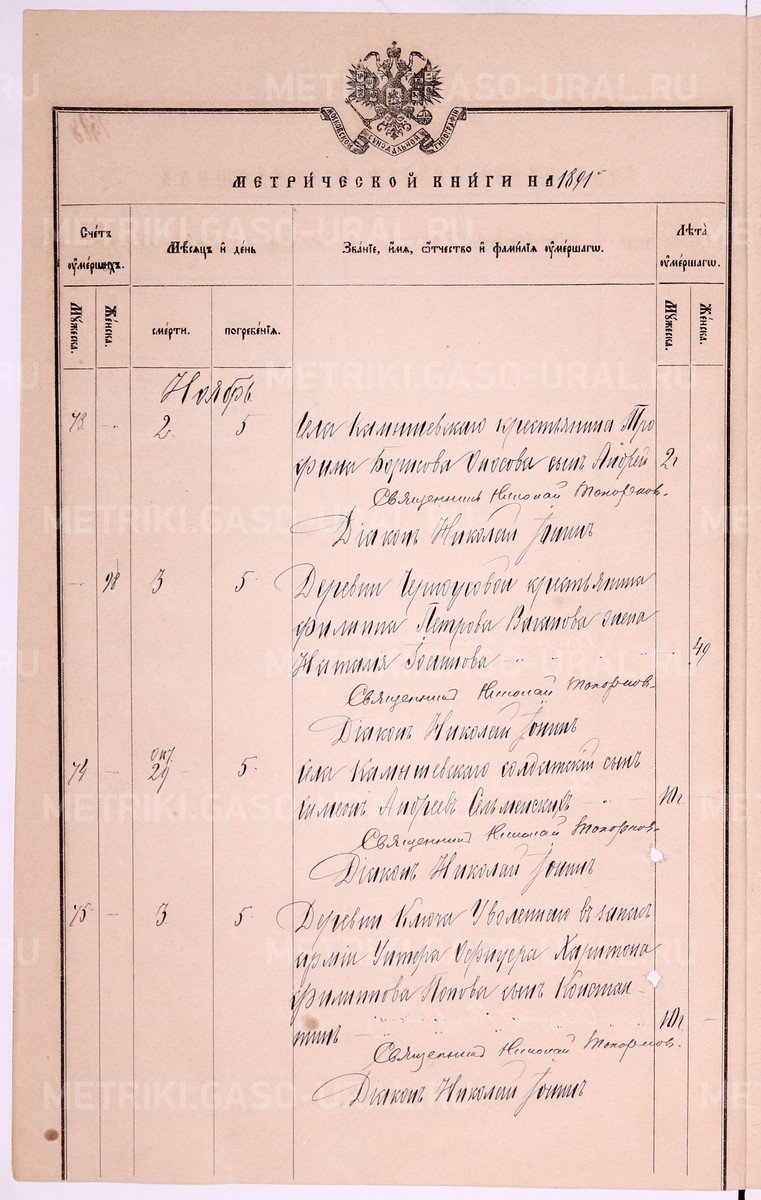 МОСКОВСКОЙ СѴНОДАЛЬНОЙ ТИПОГРАФІИ
МЕТРИ́ЧЕСКОЙ КНИ́ГИ НА 1891
Сче́тъ ᲂу҆ме́ршихъ.
Мѣ́сяцъ и҆ де́нь
Зва́нїе, и҆́мя, ѻ҆́тчество и҆ фами́лїя ᲂу҆ме́ршагѡ.
Лѣта̀ ᲂу҆ме́ршагѡ.
Мꙋ́жеска.
Же́нска.
сме́рти.
погребе́нїя.
Мꙋ́жеска.
Же́нска.
Ноябрь
73 - 2. 5 Села Камышевскаго крестьянина Тро
фима Борисова сынъ Андрей 2 г
Священникъ Николай Топорков.
Діаконъ Николай Іонинъ
- 98 3 5 Деревни Черноусовой крестьянина
Филиппа Петрова Ваганова жена
Наталія Іосифова 49
Священник Николай Топорков.
Діаконъ Николай Іонинъ
74 - Окт. 29 5. Села Камышевскаго солдатскій сынъ
Симеонъ Андреевъ
Священник Николай Топорков.
Діаконъ Николай Іонинъ
75 - 3 5. Деревни Ключа Уволеннаго въ запасъ
арміи Унтеръ Офицера Харитона
Филиппова Попова сынъ Констан
тинъ
Священник Николай Топорков.
Діаконъ Николай Іонинъ
METRIKI.GASO-URAL.RU